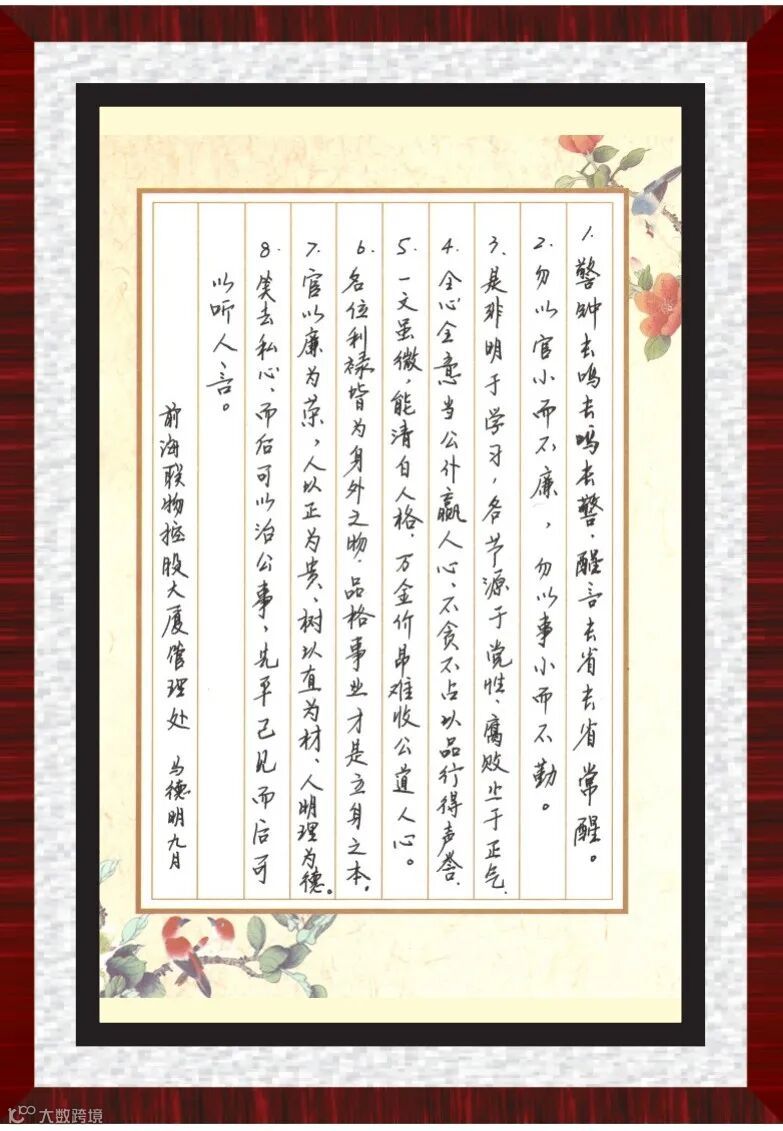 1.警钟去鸣去鸣去警,醒言去省去省常醒。
2.勿以官小而不廉,勿以事小而不勤。
3.是非明于学习,名节源于党性,腐败止于正气.
4.全心全意当公仆赢人心,不贪不占以品行得声誉.
5.一文虽微,能清白人格.万金价昂难收公道人心。
6.名位利禄皆为身外之物.品格事业才是立身之本。
7.官以廉为荣,人以正为贵.树以直为材,人明理为德。
8.笑去私心,而后可以治公事,先平己见而后可
以听人言。
前海联物控股大厦管理处 马德明九月
大数跨境